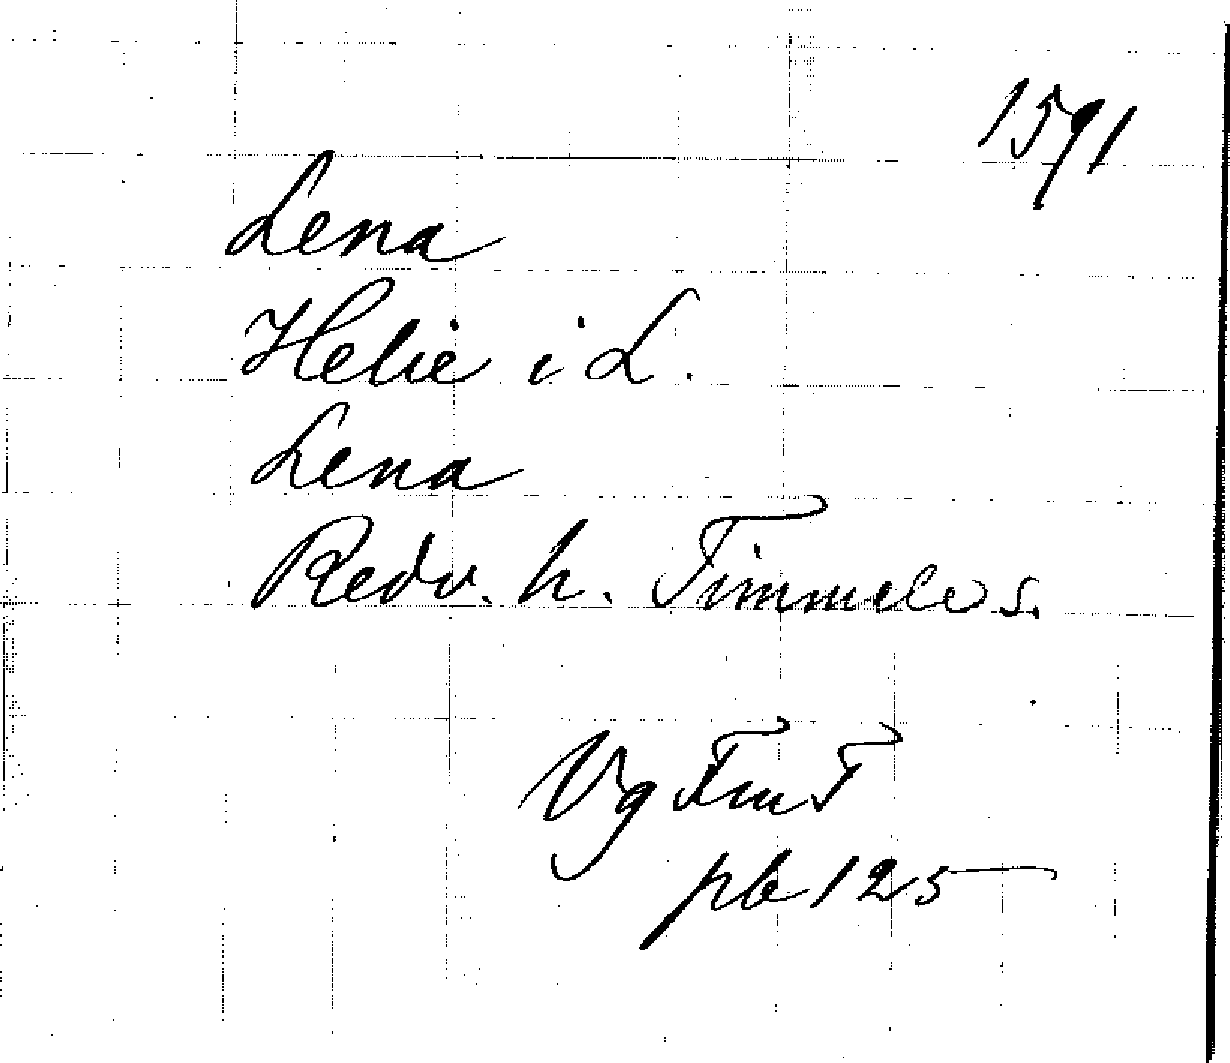 1591
Lena
Helie i L.
Lena
Redv. h. Timmele s.
Vg Fru F
pb 125